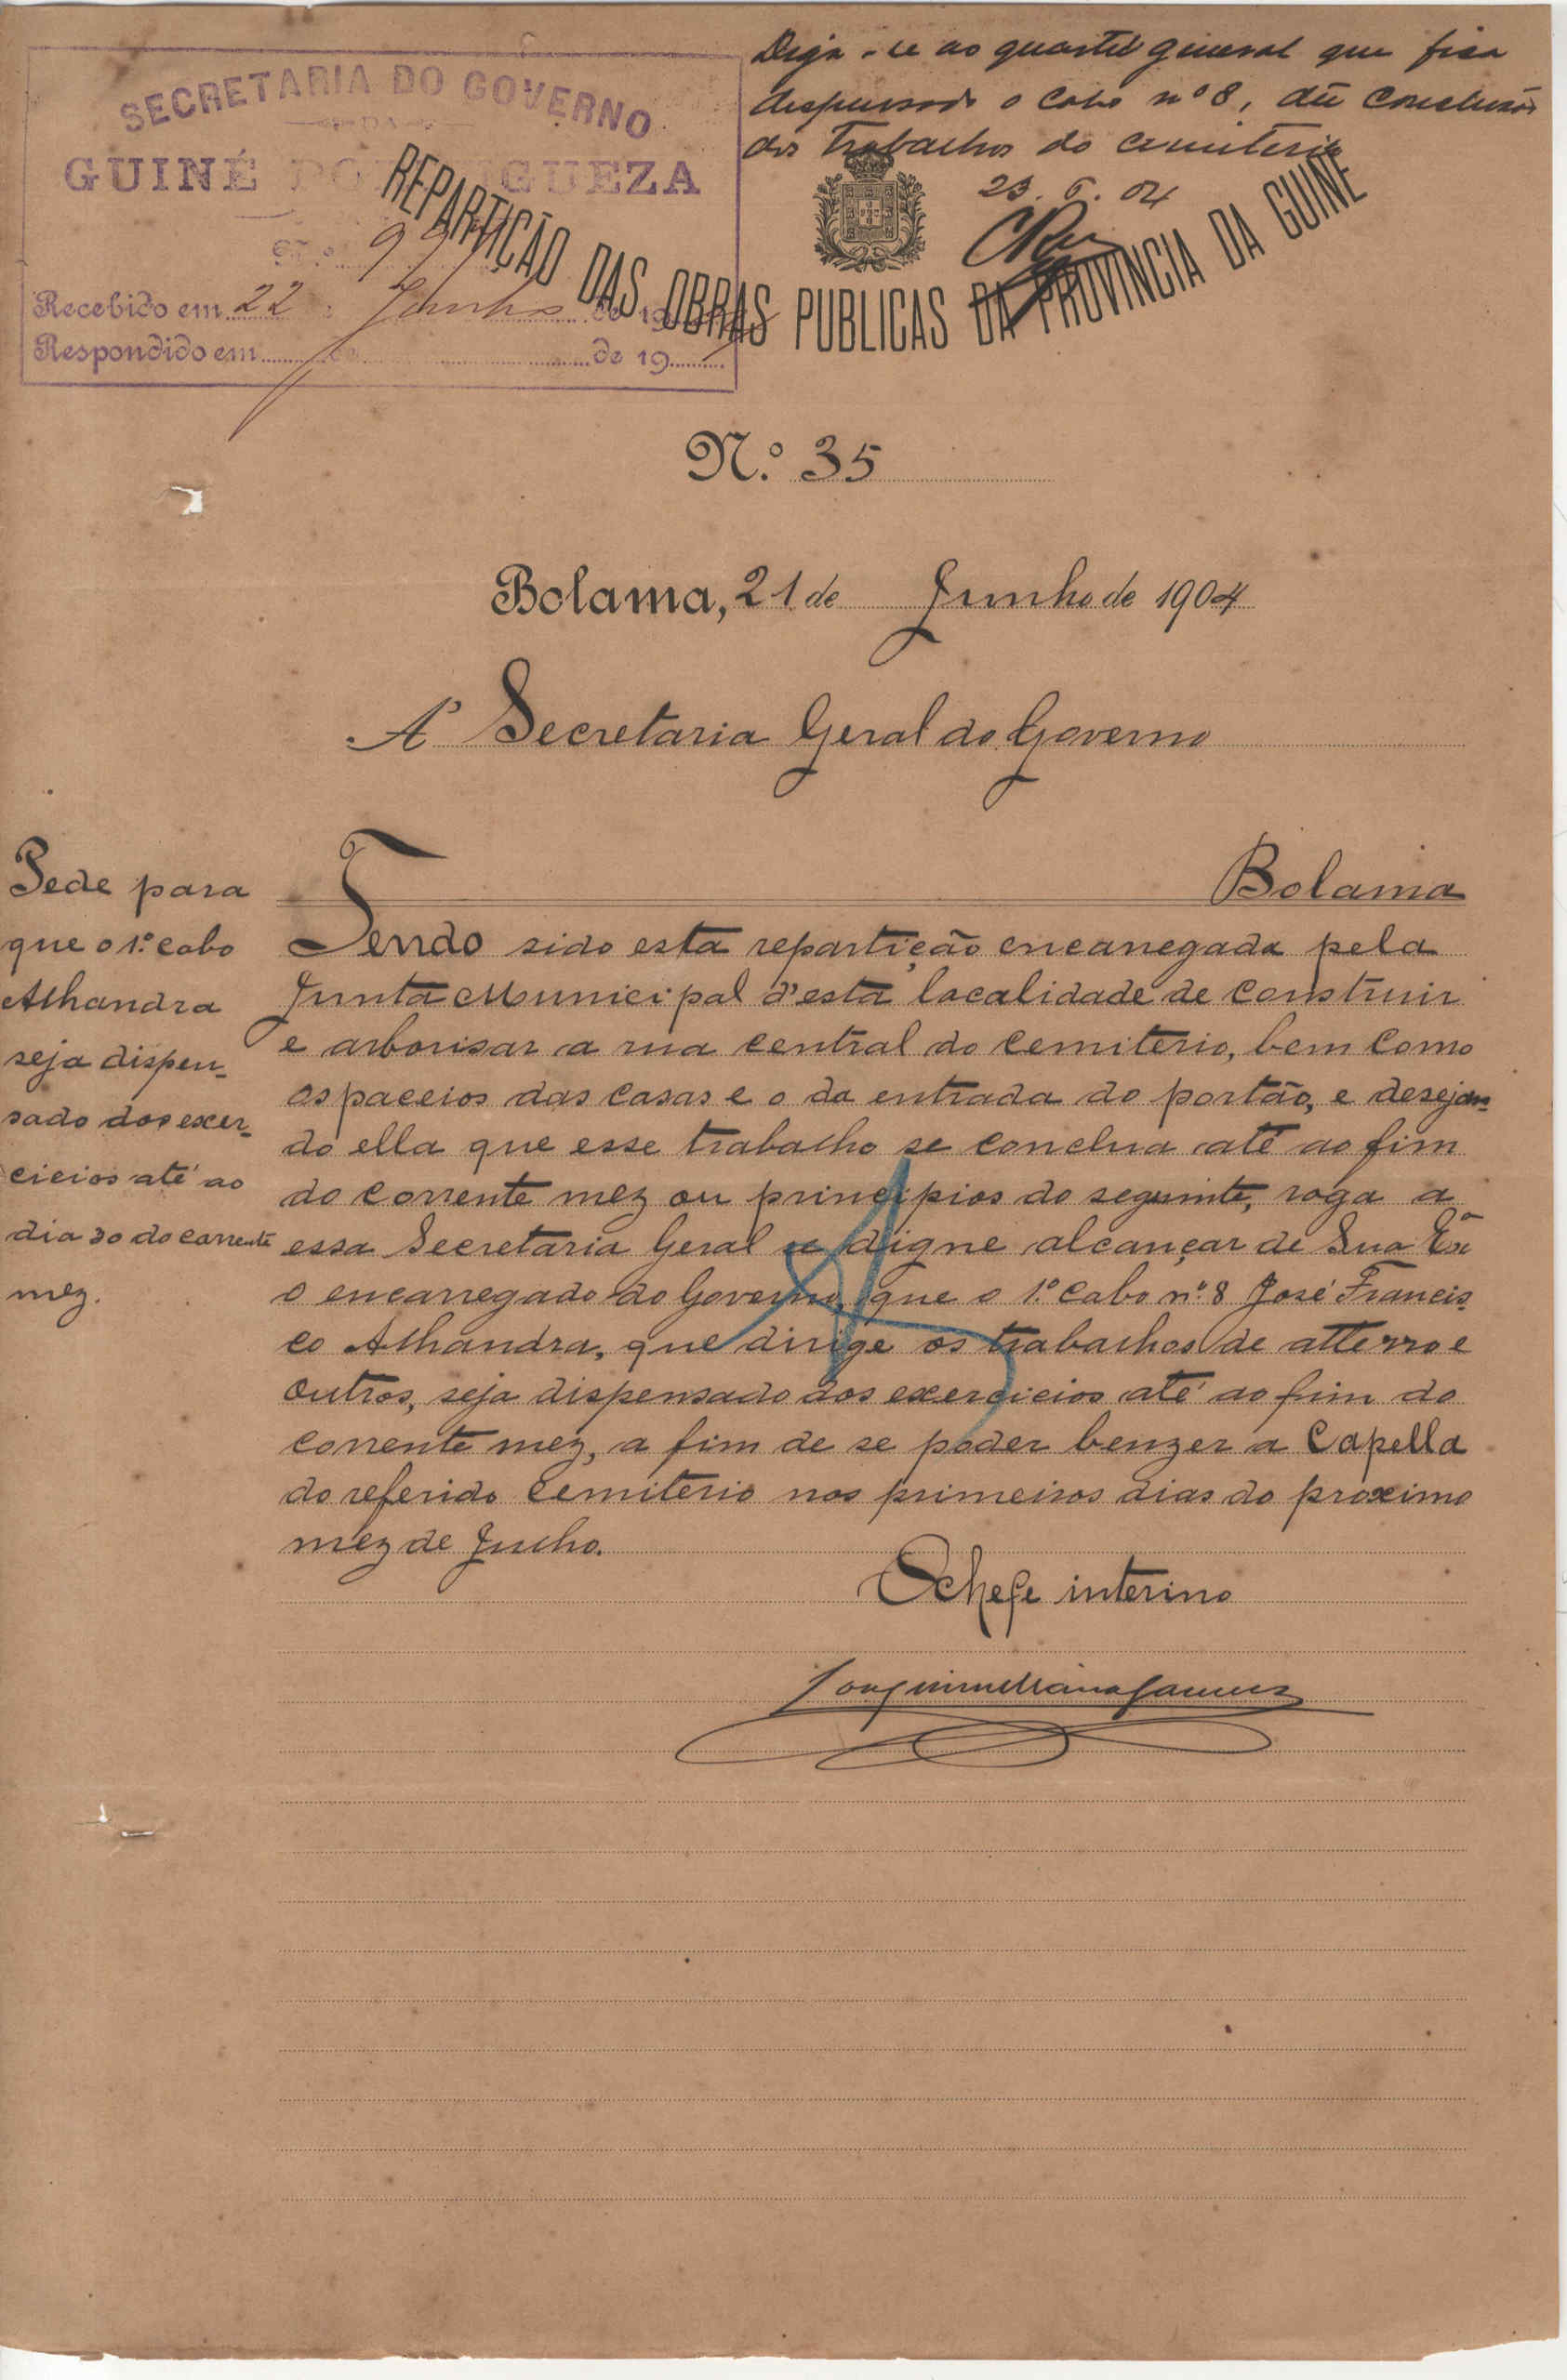 Diga-se ao quartel general que fica
dispensado o cabo nº 8, até conclusão
dos trabalhos do cemiterio
23. 6. 04
SECRETARIA DO GOVERNO
DA
GUINÉ PORTUGUEZA
N.º
Recebido em 22 de Junho de 19
Respondido em de de 19
REPARTIÇÃO DAS OBRAS PUBLICAS DA PROVINCIA DA GUINÉ
N.º 35
Bolama, 21 de Junho de 1904
A' Secretaria Geral do Governo
Bolama
Pede para
que o 1.º cabo
Alhandra
seja dispen-
sado dos exer-
cicios até ao
dia 30 do corrente
mez.
Tendo sido esta repartição encarregada pela
Junta Municipal d'esta localidade de construir
e arborisar a rua central do cemiterio, bem como
os paceios das casas e o da entrada do portão, e desejan-
do ella que esse trabalho se conclua até ao fim
do corrente mez ou principios do seguinte, roga a
essa Secretaria Geral se digne alcançar de Sua Exª
o encarregado do Governo, que o 1.º cabo nº 8 José Francis-
co Alhandra, que dirige os trabalhos de atterro e
outros, seja dispensado dos exercicios até ao fim do
corrente mez, a fim de se poder benzer a Capella
do referido Cemiterio nos primeiros dias do proximo
mez de Julho.
O Chefe interino